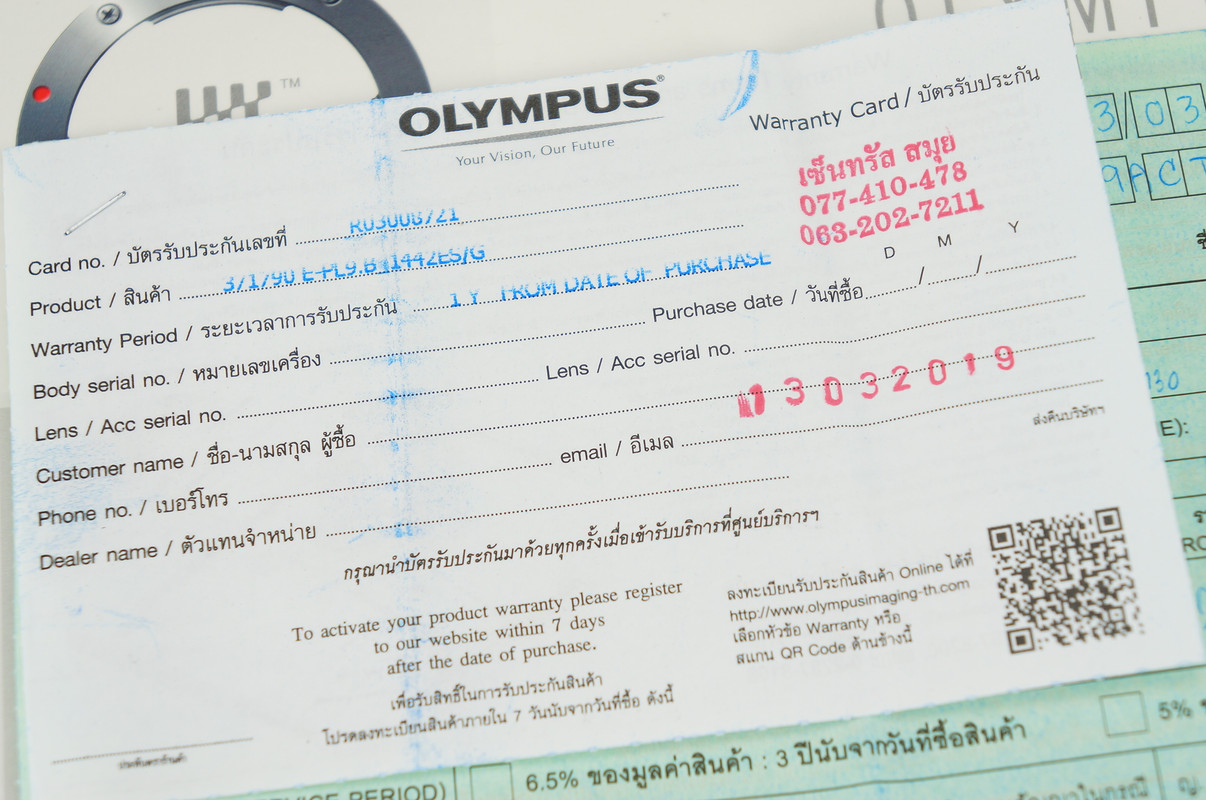 OLYMPUS®
Your Vision, Our Future
Warranty Card / บัตรรับประกัน
เซ็นทรัล สมุย
077-410-478
063-202-7211
Card no. / บัตรรับประกันเลขที่ R03006721
Product / สินค้า 371790 E-PL9.B+1442ES/G
Warranty Period / ระยะเวลาการรับประกัน 1 Y FROM DATE OF PURCHASE
D M Y
Body serial no. / หมายเลขเครื่อง Purchase date / วันที่ซื้อ / /
Lens / Acc serial no. Lens / Acc serial no.
13032019
Customer name / ชื่อ-นามสกุล ผู้ซื้อ
Phone no. / เบอร์โทร email / อีเมล
ส่งคืนบริษัทฯ
Dealer name / ตัวแทนจำหน่าย
กรุณานำบัตรรับประกันมาด้วยทุกครั้งเมื่อเข้ารับบริการที่ศูนย์บริการฯ
To activate your product warranty please register
to our website within 7 days
after the date of purchase.
เพื่อรับสิทธิ์ในการรับประกันสินค้า
โปรดลงทะเบียนสินค้าภายใน 7 วันนับจากวันที่ซื้อ ดังนี้
ลงทะเบียนรับประกันสินค้า Online ได้ที่
http://www.olympusimaging-th.com
เลือกหัวข้อ Warranty หรือ
สแกน QR Code ด้านข้างนี้
ประทับตราร้านค้า
3/03
9ACT
130
E):
5%
6.5% ของมูลค่าสินค้า : 3 ปีนับจากวันที่ซื้อสินค้า
PERIOD)
TM